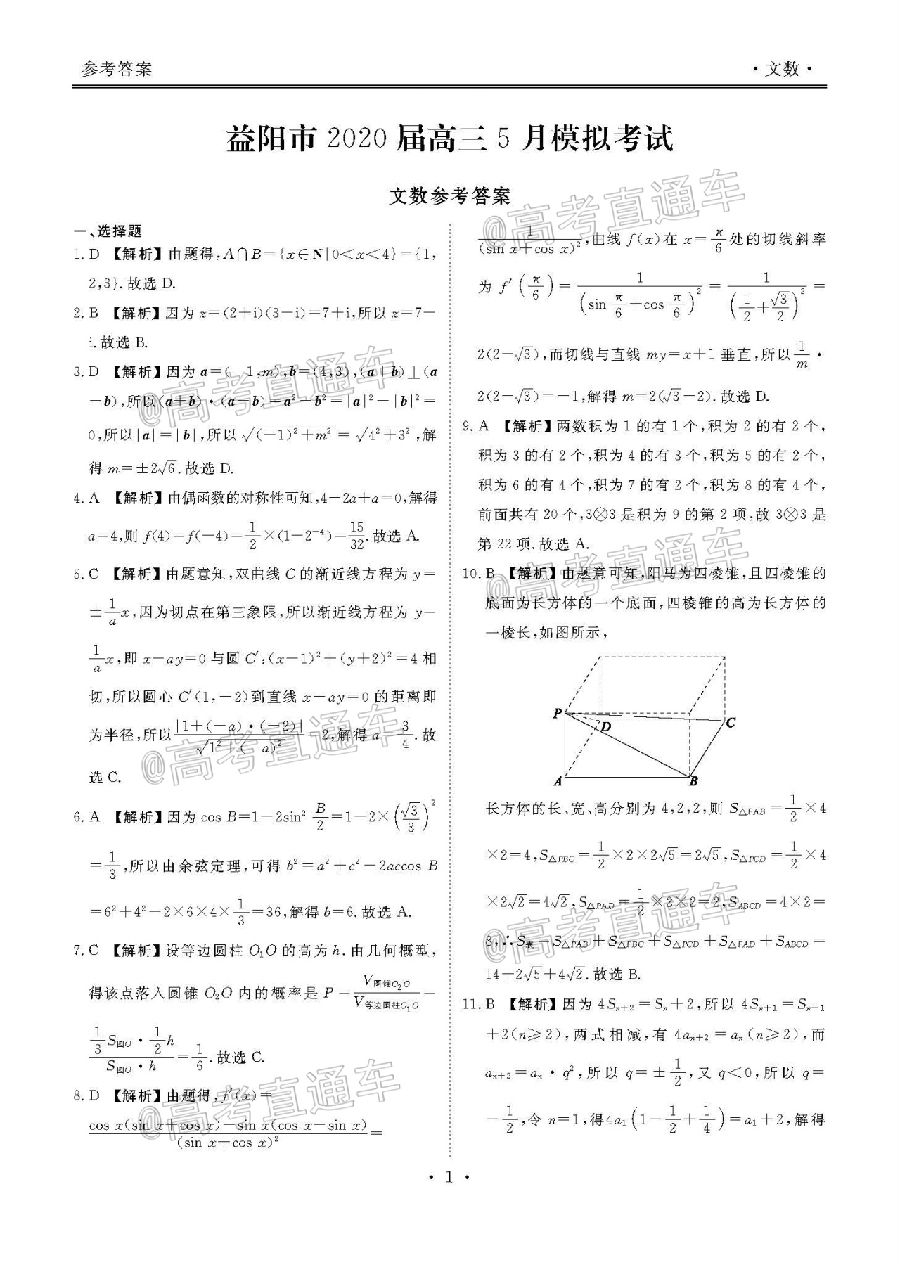 参考答案
·文数·
益阳市 2020 届高三 5 月模拟考试
文数参考答案
一、选择题
1. D 【解析】由题得,A∩B={x∈N|0<x<4}={1,
2,3}.故选 D.
2. B 【解析】因为 z=(2+i)(3-i)=7+i,所以 z=7-
i.故选 B.
3. D 【解析】因为 a=(-1,m),b=(4,3),(a+b)⊥(a
-b),所以(a+b)·(a-b)=a²-b²=|a|²-|b|²=
0,所以|a|=|b|,所以√((-1)²+m²)=√(4²+3²),解
得 m=±2√6.故选 D.
4. A 【解析】由偶函数的对称性可知,4-2a+a=0,解得
a=4,则 f(4)=f(-4)=1/2×(1-2⁻⁴)=15/32.故选 A.
5. C 【解析】由题意知,双曲线 C 的渐近线方程为 y=
±1/a x,因为切点在第三象限,所以渐近线方程为 y=
1/a x,即 x-ay=0 与圆 C′:(x-1)²+(y+2)²=4 相
切,所以圆心 C′(1,-2)到直线 x-ay=0 的距离即
为半径,所以 |1+(-a)·(-2)|/√(1²+(-a)²)=2,解得 a=3/4.故
选 C.
6. A 【解析】因为 cos B=1-2sin² B/2=1-2×(√3/3)²
=1/3,所以由余弦定理,可得 b²=a²+c²-2accos B
=6²+4²-2×6×4×1/3=36,解得 b=6.故选 A.
7. C 【解析】设等边圆柱 O₁O 的高为 h.由几何概型,
得该点落入圆锥 O₂O 内的概率是 P=V圆锥O₂O/V等边圆柱O₁O=
(1/3 S圆O·1/2 h)/(S圆O·h)=1/6.故选 C.
8. D 【解析】由题得,f′(x)=
(cos x(sin x+cos x)-sin x(cos x-sin x))/(sin x-cos x)²=
1/(sin x+cos x)²,曲线 f(x)在 x=π/6 处的切线斜率
为 f′(π/6)=1/(sin π/6-cos π/6)²=1/(1/2+√3/2)²=
2(2-√3),而切线与直线 my=x+1 垂直,所以 1/m·
2(2-√3)=-1,解得 m=2(√3-2).故选 D.
9. A 【解析】两数积为 1 的有 1 个,积为 2 的有 2 个,
积为 3 的有 2 个,积为 4 的有 3 个,积为 5 的有 2 个,
积为 6 的有 4 个,积为 7 的有 2 个,积为 8 的有 4 个,
前面共有 20 个,3⊗3 是积为 9 的第 2 项,故 3⊗3 是
第 22 项.故选 A.
10. B 【解析】由题意可知,阳马为四棱锥,且四棱锥的
底面为长方体的一个底面,四棱锥的高为长方体的
一棱长,如图所示,
P
D
C
A
B
长方体的长、宽、高分别为 4,2,2,则 S△PAB=1/2×4
×2=4,S△PBC=1/2×2×2√5=2√5,S△PCD=1/2×4
×2√2=4√2,S△PAD=1/2×2×2=2,SABCD=4×2=
8,∴S表=S△PAB+S△PBC+S△PCD+S△PAD+SABCD=
14+2√5+4√2.故选 B.
11. B 【解析】因为 4Sₙ₊₂=Sₙ+2,所以 4Sₙ₊₁=Sₙ₋₁
+2(n≥2),两式相减,有 4aₙ₊₂=aₙ(n≥2),而
aₙ₊₂=aₙ·q²,所以 q=±1/2,又 q<0,所以 q=
-1/2,令 n=1,得 4a₁(1-1/2+1/4)=a₁+2,解得
·1·
@高考直通车
@高考直通车
@高考直通车
@高考直通车
@高考直通车
@高考直通车